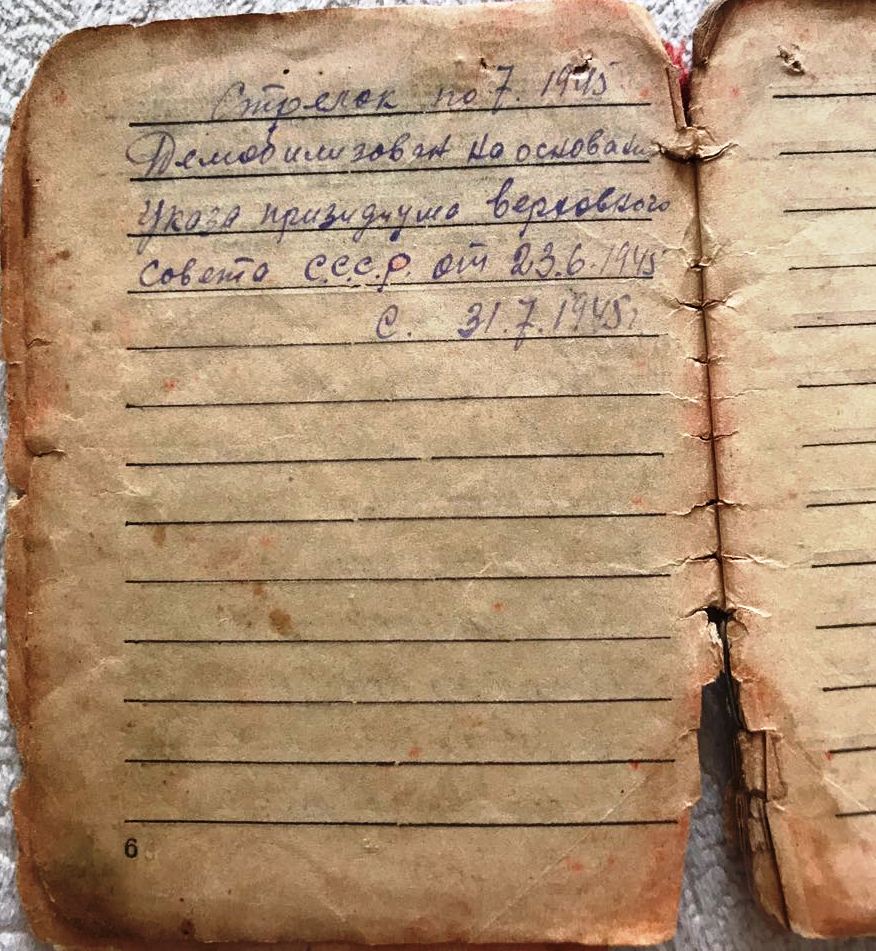 Стрелок по 7. 1945
Демобилизован на основании
Указа призидиума верховного
совета С.С.С.Р. от 23.6.1945
с. 31.7.1945г
6